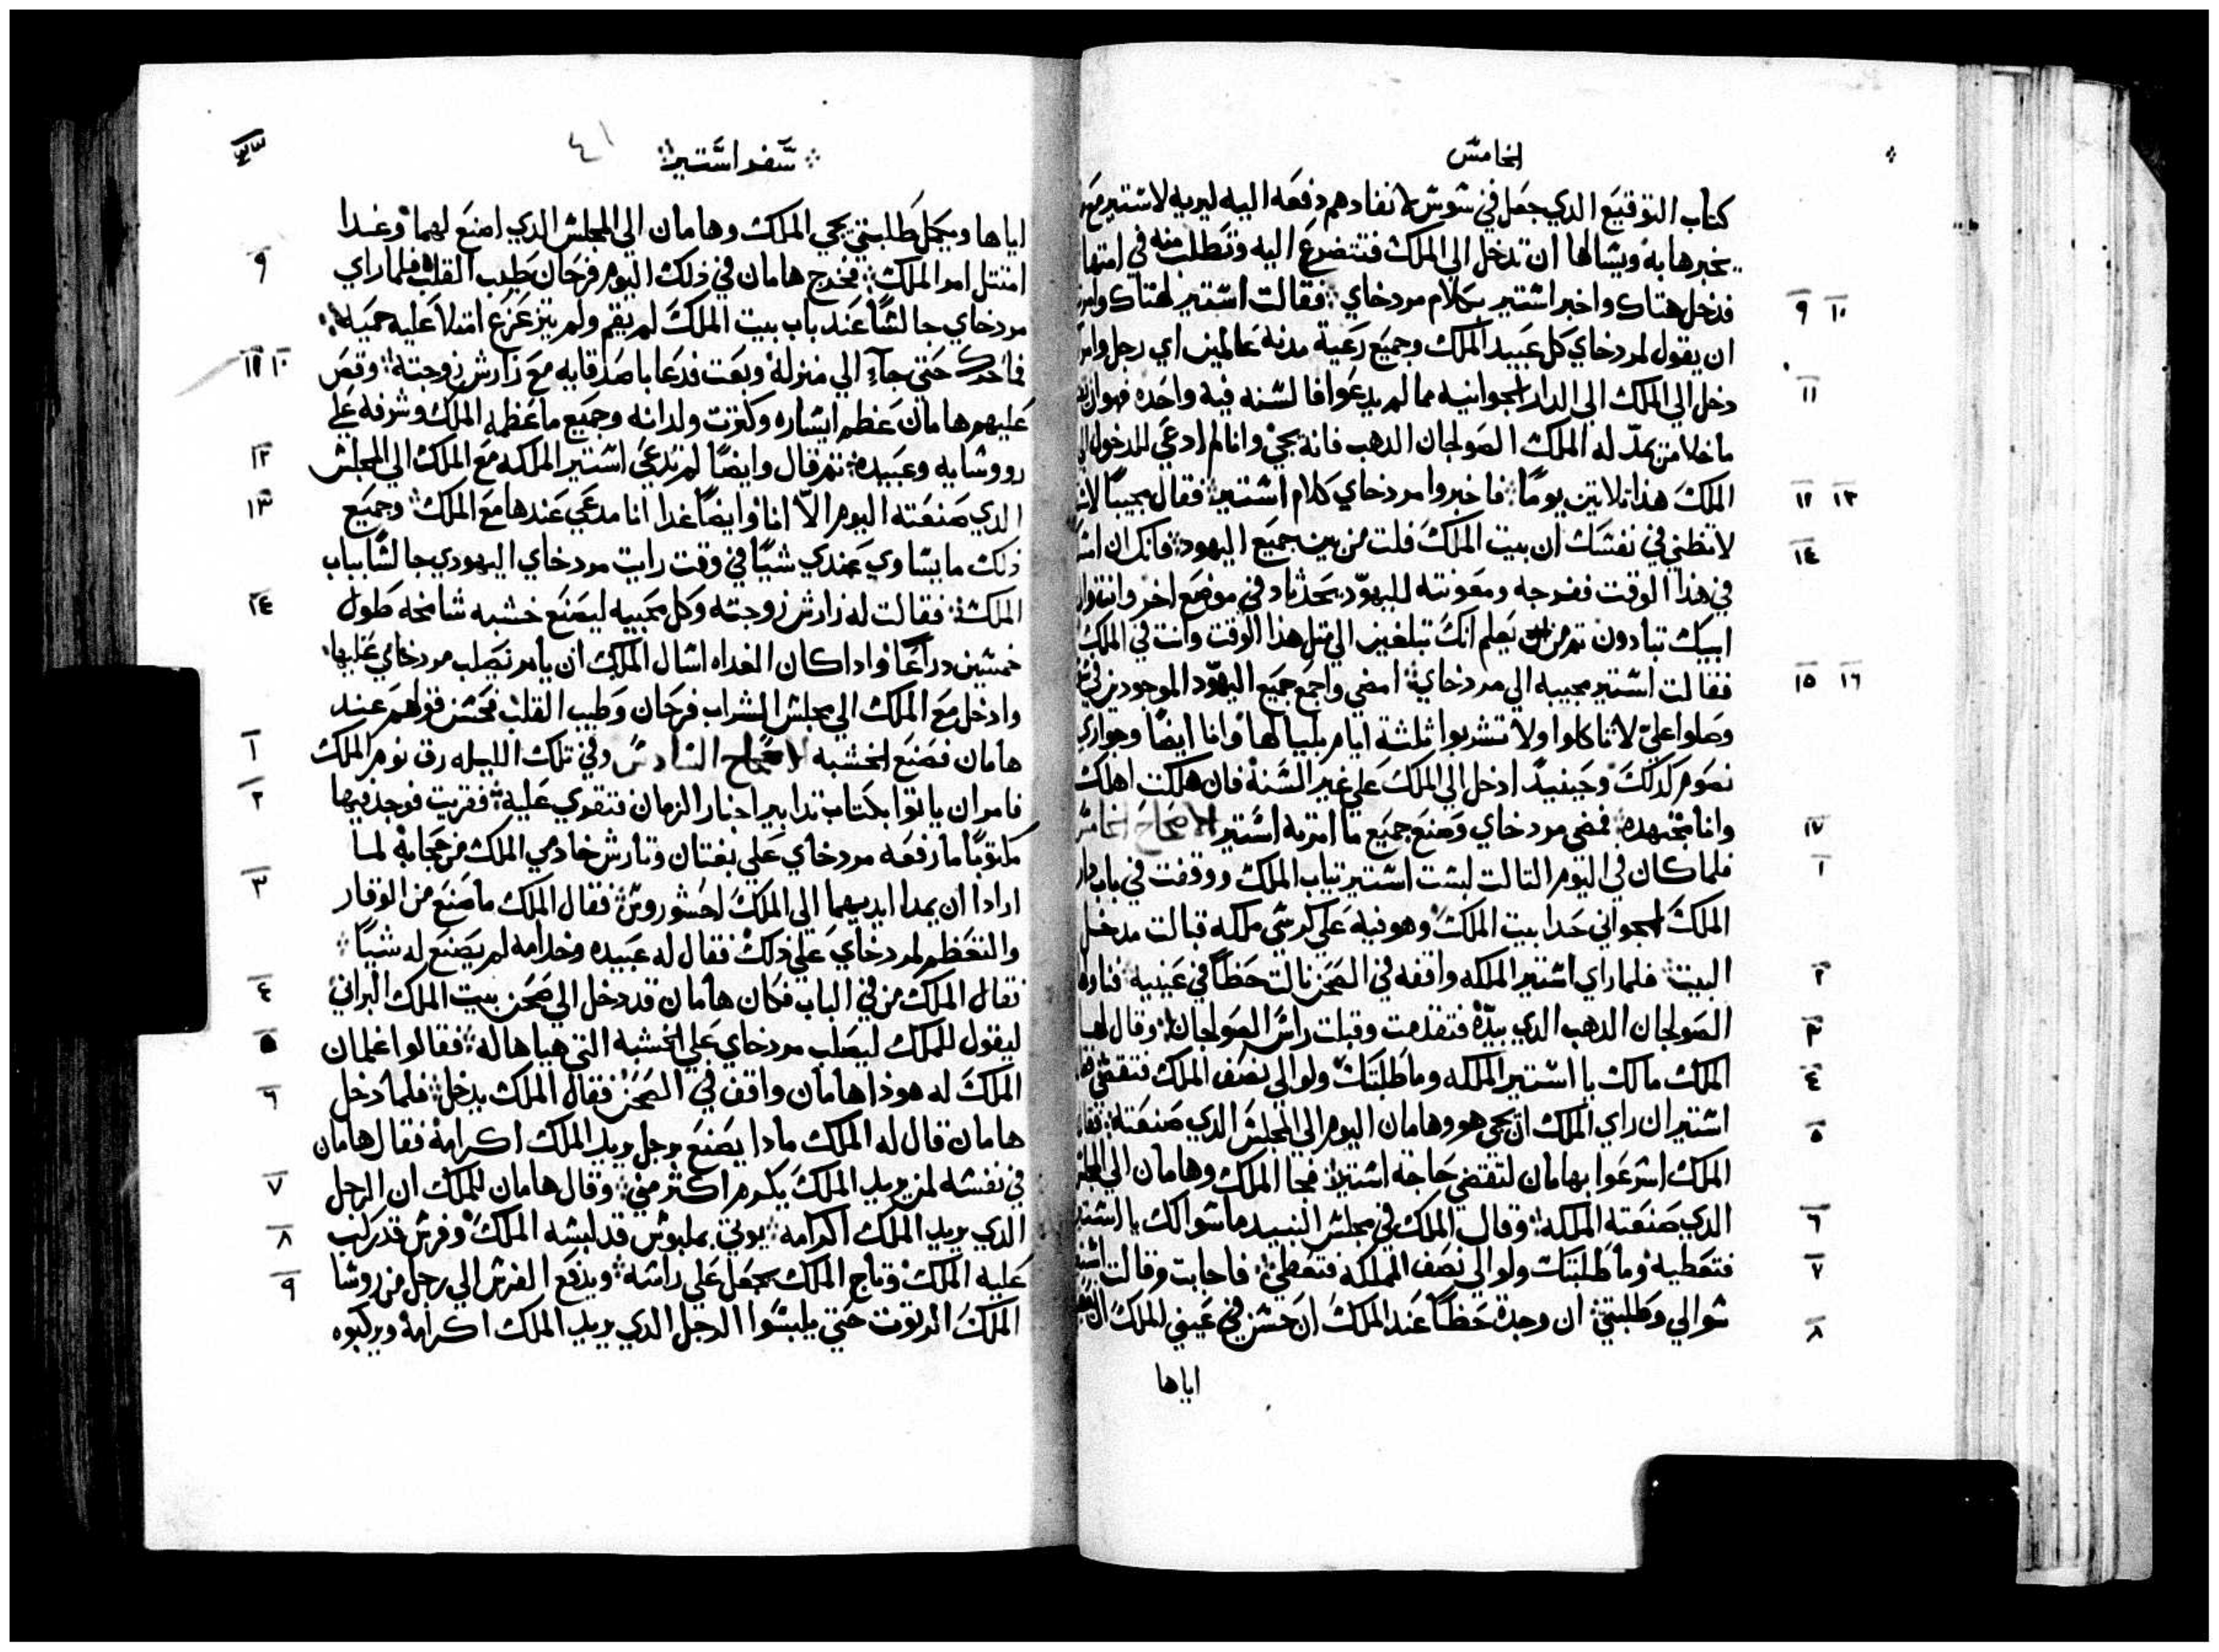 الخامس
كتاب التوقيع الذي جعل في شوش لانفادهم دفعه اليه ليريه لاستير
يخبرها به ويسالها ان تدخل الي الملك فتتضرع اليه وتطلب منه في امتها
فدخل هتاك واخبر استير بكلام مردخاي فقالت استير لهتاك
ان يقول لمردخاي كل عبيد الملك وجميع رعية مدنه عالمين اي رجل
دخل الي الملك الي الدار الجوانيه مما لم يدعوا فالسنه فيه واحده
ما خلا من يمد له الملك الصولجان الدهب فانه يحي وانا لم ادعي للدخول
الملك هذا تلاتين يوما فاخبروا مردخاي كلام استير فقال مجيبا
لا تظني في نفسك ان بيت الملك فلت من بين جميع اليهود فانك ان
في هذا الوقت ففرجه ومعونته لليهود يحدثا في موضع اخر
ابيك تبادون يعلم انك تبلغين الي متل هذا الوقت وانت في الملك
فقالت استير مجيبه الي مردخاي امضي واجمع جميع اليهود الموجودين
وصلوا علي لا تاكلوا ولا تشربوا ثلثة ايام بلياليها وانا ايضا وجواري
نصوم كدلك وحينيد ادخل الي الملك علي غير السنه فان هلكت اهلك
وانا مجتهده فمضي مردخاي وصنع جميع ما امرته استير الاصحاح الخامس
فلما كان في اليوم التالت لبست استير تياب الملك ووقفت في باب دار
الملك الجواني حدا بيت الملك وهو فيه علي كرسي ملكه قبالت مدخل
البيت فلما راي استير الملكه واقفه في الصحن نالت حظا في عينيه
الصولجان الدهب الدي بيده فتقدمت وقبلت راس الصولجان وقال لها
الملك مالك يا استير الملكه وما طلبتك ولو الي نصف الملك فتقضي
استير ان راي الملك ان يجي هو وهامان اليوم الي المجلس الدي صنعته
الملك اسرعوا بهامان لتقضي حاجة استير فجا الملك وهامان الي
الدي صنعته الملكه وقال الملك في مجلس النبيد ما سوالك يا استير
فتعطيه وما طلبتك ولو الي نصف المملكه فتعطي فاجابت وقالت
سوالي وطلبتي ان وجدة حظا عند الملك ان حسن في عيني الملك
اياها
سفر استير
٤١
اياها ويكمل طلبتي يجي الملك وهامان الي المجلس الدي اصنع لهما وغدا
امتتل امر الملك فخرج هامان في دلك اليوم فرحان طيب القلب فلما راي
مردخاي جالسا عند باب بيت الملك لم يقم ولم يتزعزع امتلا عليه حميه
حتي جآء الي منزله وبعت فدعا باصدقايه مع زارش زوجته وقص
عليهم هامان عظم ايساره وكترت ولدانه وجميع ما عظمه الملك وشرفه علي
رووسايه وعبيده تم قال وايضا لم تدعي استير الملكه مع الملك الي المجلس
الدي صنعته اليوم الا انا وايضا غدا انا مدعي عندها مع الملك وجميع
دلك ما يساوي عندي شيا في وقت رايت مردخاي اليهودي جالسا بباب
الملك فقالت له زارش زوجته وكل محبيه ليصنع خشبه شامخه طول
خمسين دراعا وادا كان الغداه اسال الملك ان يامر بصلب مردخاي عليها
وادخل مع الملك الي مجلس الشراب فرحان وطيب القلب فحسن قولهم عند
هامان فصنع الخشبه الاصحاح السادس وفي تلك الليله رق نوم الملك
فامر ان ياتوا بكتاب تدابير اخبار الزمان فتقري عليه فقريت فوجد فيها
مكتوبا ما رفعه مردخاي علي بغتان وتارش خادمي الملك من حجابه لما
ارادا ان يمدا ايديهما الي الملك احشوروش فقال الملك ما صنع من الوقار
والتعظم لمردخاي علي دلك فقال له عبيده وخدامه لم يصنع له شيا
فقال الملك من في الباب فكان هامان قد دخل الي صحن بيت الملك البراني
ليقول للملك ليصلب مردخاي علي الخشبه التي هياها له فقالوا غلمان
الملك له هودا هامان واقف في الصحن فقال الملك يدخل فلما دخل
هامان قال له الملك مادا يصنع برجل يريد الملك اكرامه فقال هامان
في نفسه لمن يريد الملك يكرم اكتر مني وقال هامان للملك ان الرجل
الدي يريد الملك اكرامه يوتي بملبوس قد لبسه الملك وفرس قد ركب
عليه الملك وتاج الملك يجعل علي راسه ويدفع الفرس الي رجل من روسا
الملك حتي يلبسوا الرجل الدي يريد الملك اكرامه ويركبوه